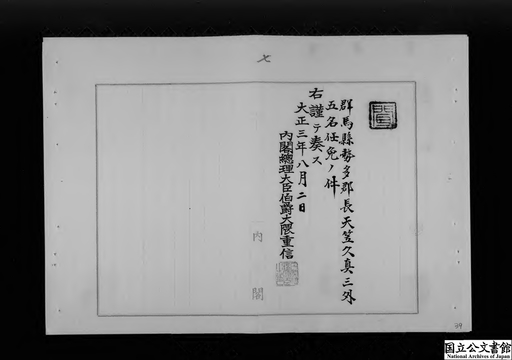 七
群馬縣勢多郡長天笠久真三外
五名任免ノ件
右謹テ奏ス
大正三年八月二日
内閣總理大臣伯爵大隈重信
内閣
39
国立公文書館
National Archives of Japan